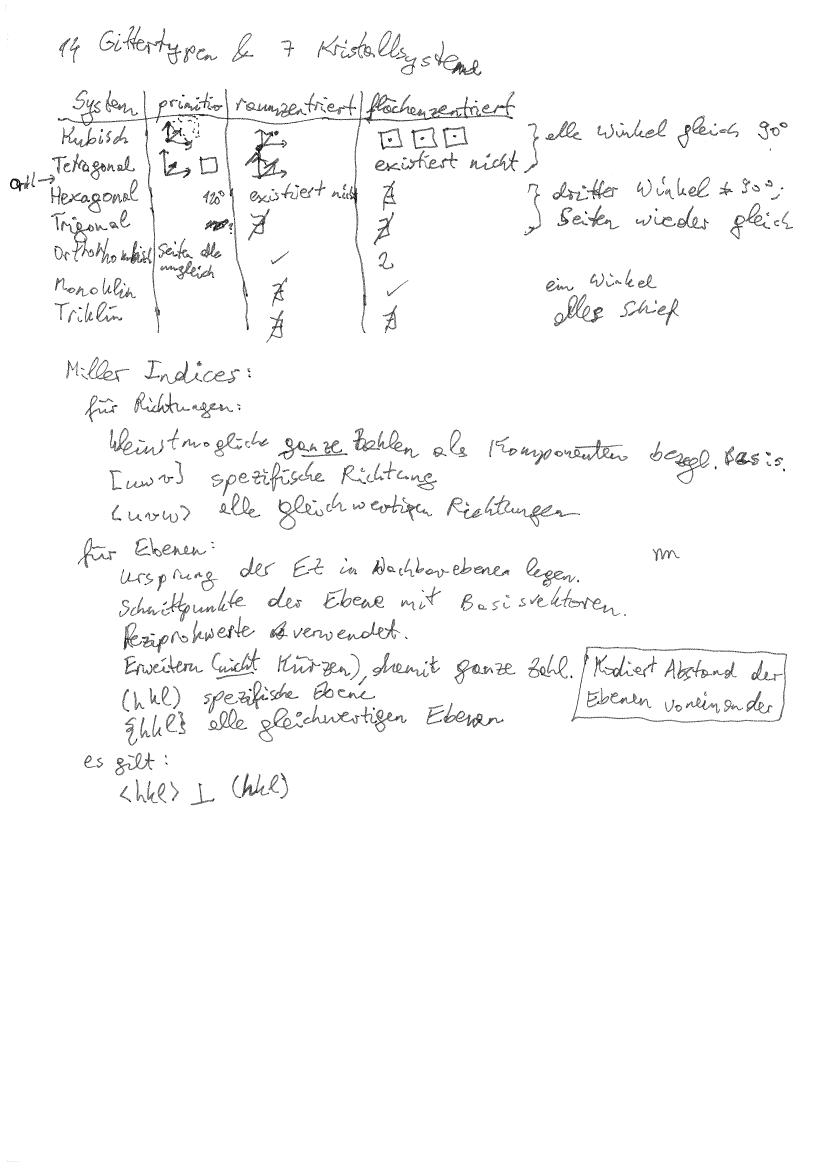 14 Gittertypen & 7 Kristallsysteme
System primitiv raumzentriert flächenzentriert
Kubisch } alle Winkel gleich 90°
Tetragonal existiert nicht
Orth →
Hexagonal 120° existiert nicht ∄ } dritter Winkel ≠ 90°;
Trigonal ∄ ∄ Seiten wieder gleich
Orthorhombisch Seiten alle ungleich ✓ 2
Monoklin ∄ ✓ ein Winkel
Triklin ∄ ∄ alles schief
Miller Indices:
für Richtungen:
kleinstmögliche ganze Zahlen als Komponenten bezgl. Basis.
[uvw] spezifische Richtung
<uvw> alle gleichwertigen Richtungen
für Ebenen:
Ursprung der EZ in Nachbarebenen legen.
Schnittpunkte der Ebene mit Basisvektoren.
Reziprokwerte verwendet.
Erweitern (nicht Kürzen), damit ganze Zahl.
(hkl) spezifische Ebene
{hkl} alle gleichwertigen Ebenen
Kodiert Abstand der
Ebenen voneinander
es gilt:
<hkl> ⊥ (hkl)